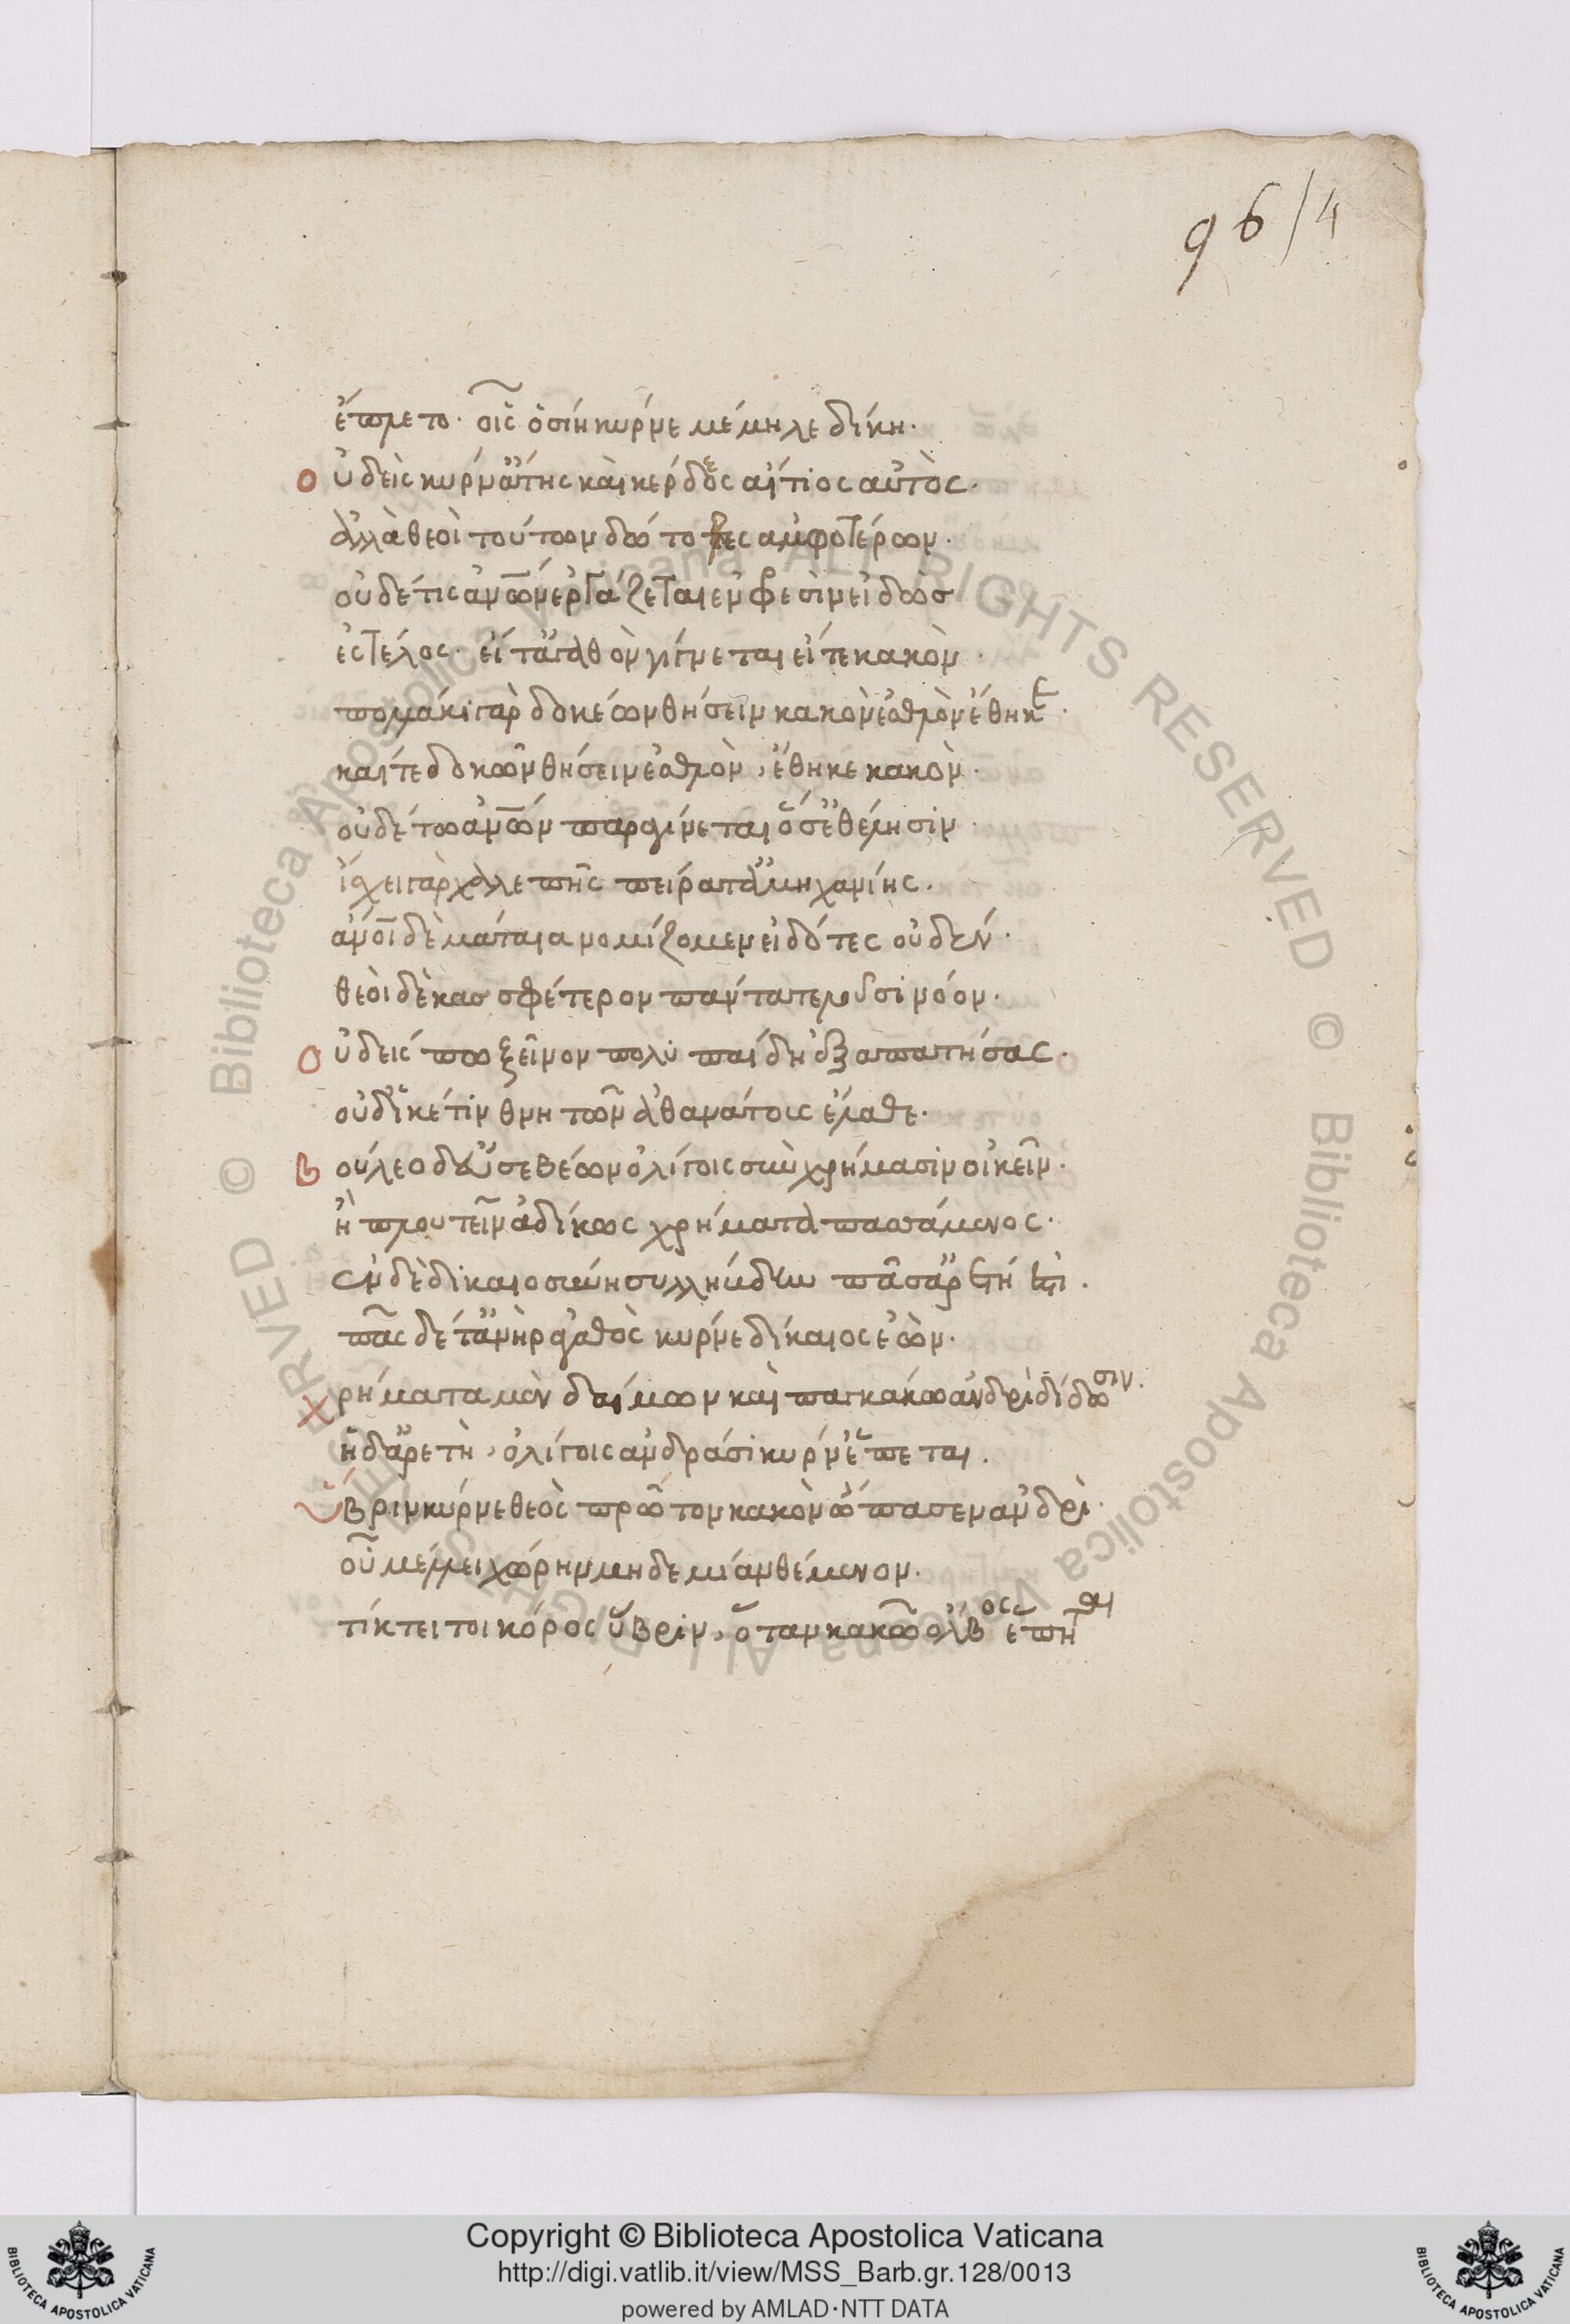 96/4
ἔπλετο· οἷς ὁσίη κύρνε μέμηλε δίκη·
Οὐδεὶς κύρν' ἄτης καὶ κέρδεος αἴτιος αὐτὸς·
ἀλλὰ θεοὶ τούτων δώτορες ἀμφοτέρων·
οὐδέ τις ἀνῶν ἐργάζεται ἐν φρεσὶν εἰδὼσ
ἐς τέλος· εἴτ' ἀγαθὸν γίνεται εἴτε κακὸν·
πολλάκι γὰρ δοκέων θήσειν κακὸν ἐσθλὸν ἔθηκε·
καί τε δοκῶν θήσειν ἐσθλὸν, ἔθηκε κακὸν·
οὐδέ τω ἀνῶν παραγίνεται ὅσσ' ἐθέλησιν·
ἴσχει γὰρ χαλεπῆς πείρατ' ἀμηχανίης·
ἄνοι δὲ μάταια νομίζομεν εἰδότες οὐδέν·
θεοὶ δὲ κατὰ σφέτερον πάντα τελοῦσι νόον·
Οὐδείς πω ξεῖνον πολυπαίδη ἐξαπατήσας·
οὐδ' ἱκέτιν θνητῶν ἀθανάτοις ἔλαθε·
Βούλεο δ' εὐσεβέων ὀλίγοις σὺν χρήμασιν οἰκεῖν·
ἢ πλουτεῖν ἀδίκως χρήματα πασάμενος·
ἐν δὲ δικαιοσύνη συλλήβδην πᾶσ' ἀρετή ἐστι·
πᾶς δέ τ' ἀνὴρ ἀγαθὸς κύρνε δίκαιος ἐὼν·
Χρήματα μὲν δαίμων καὶ παγκάκω ἀνδρὶ δίδωσιν·
ἡ δ' ἀρετὴ, ὀλίγοις ἀνδράσι κύρν' ἕπεται·
Ὕβριν κύρνε θεὸς πρῶτον κακὸν ὤπασεν ἀνδρὶ·
οὗ μέλλει χώρην μηδεμίαν θέμενον·
τίκτει τοι κόρος ὕβριν, ὅταν κακῶ ὄλβος ἕπηται
Copyright © Biblioteca Apostolica Vaticana
http://digi.vatlib.it/view/MSS_Barb.gr.128/0013
powered by AMLAD·NTT DATA